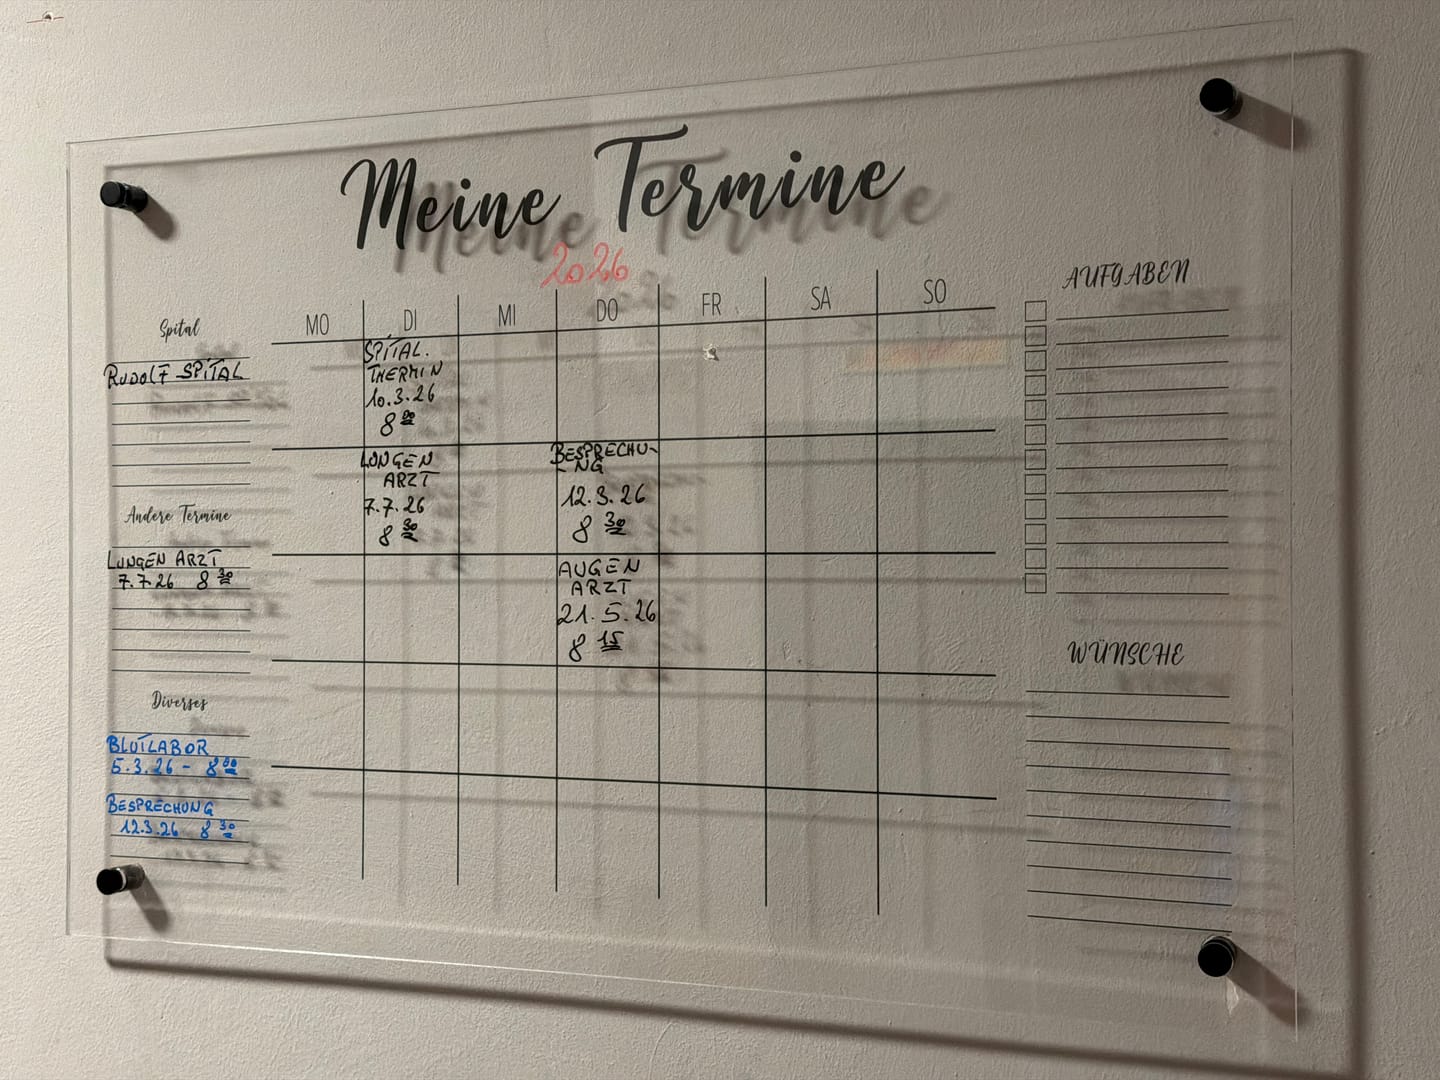 Meine Termine
2026
MO DI MI DO FR SA SO
Spital
RUDOLF SPITAL
Andere Termine
LUNGEN ARZT
7.7.26 8 30
Diverses
BLUTLABOR
5.3.26 - 8 00
BESPRECHUNG
12.3.26 8 30
SPITAL.
THERMIN
10.3.26
8 00
LUNGEN
ARZT
7.7.26
8 30
BESPRECHU-
- NG
12.3.26
8 30
AUGEN
ARZT
21.5.26
8 15
AUFGABEN
WÜNSCHE